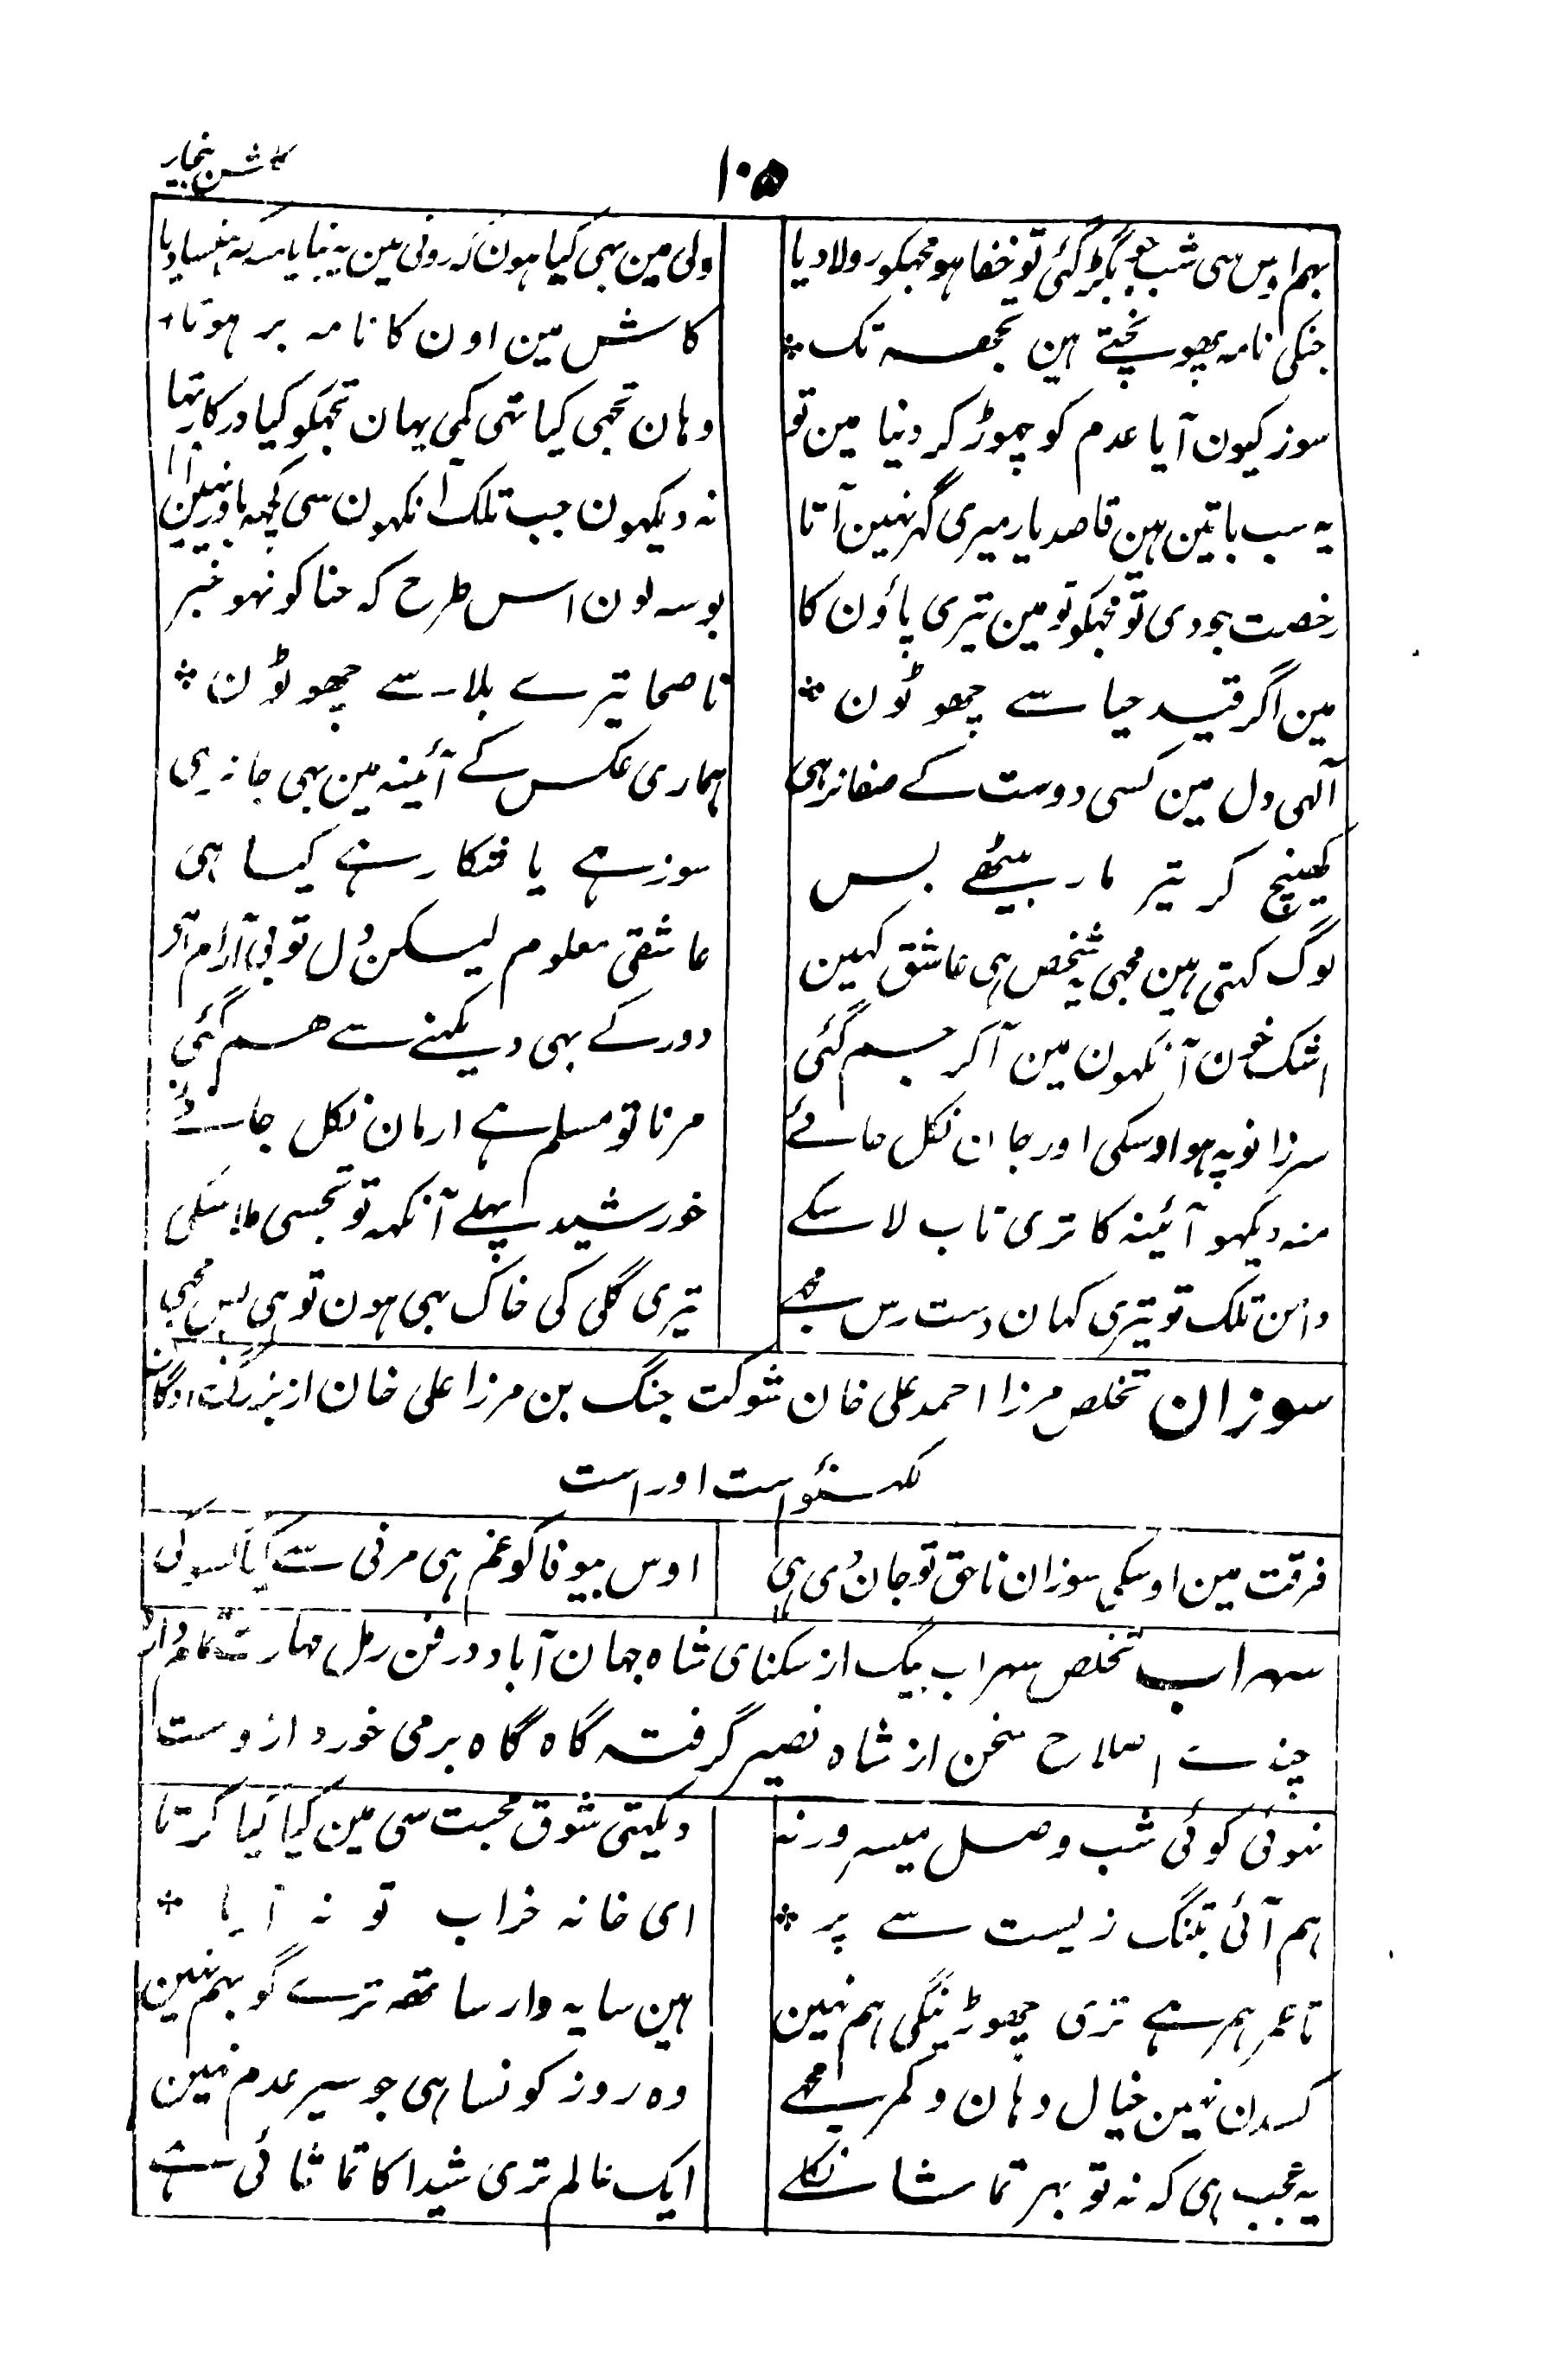 ۱۰۵
گلشن بیخار
ہم اوس سی شب جو بگڑ گئی تو خفا ہو مجہکو رولا دیا
ولی مین بہی کیا ہون کہ رونی مین یہ بنایا منہ کہ ہنسا دیا
جنکی نامہ پہونچتے ہین تجھہ تک
کاش مین اون کا نامہ بر ہوتا
سوز کیون آیا عدم کو چہوڑ کر دنیا مین تو
وہان تجہی کیا تہی کمی یہان تجہکو کیا درکار تہا
یہ سب باتین ہین قاصد یار میری گہر نہین آتا
نہ دیکہون جب تلک آنکہون سی کچہہ باور نہین آتا
رخصت جو دی تو مجہکو تو مین تیری پاؤن کا
بوسہ لون اس طرح کہ حنا کو نہو خبر
مین اگر قید حیا سے چھوٹون
ناصحا تیرے بلا سے چھوٹون
آلہی دل مین کسی دوست کے صفا نرہی
ہماری عکس کے آئینہ مین بہی جا نہ رہی
کھینچ کر تیر مار بیٹھے بس
سوز ہے یا شکار ہے کیا ہی
لوگ کہتی ہین مجہی یہ شخص ہی عاشق کہین
عاشقی معلوم لیکن دل تو بی آرام ہی
اشک خون آنکہون مین آکر جم گئی
دور کے بہی دیکہنے سے ہم گئی
سر زانو پہ ہو اوسکی اور جان نکل جائے
مرنا تو مسلم ہے ارمان نکل جائے
منہ دیکہو آئینہ کا تری تاب لا سکے
خورشید پہلے آنکہہ تو تجسی ملا سکی
دامن تلک تو تیری کہان دست رس مجھے
تیری گلی کی خاک بہی ہون تو ہی بس مجہی
سوزان تخلص مرزا احمد علی خان شوکت جنگ بن مرزا علی خان از بزرگ زادگان
لکہنئو است اوراست
فرقت مین اوسکی سوزان ناحق تو جان دی ہی
اوس بیوفا کو غم ہی مرنی سے کیا کسو کی
سہراب تخلص سہراب بیگ از سکنای شاہ جہان آباد در فن رمل مہارت تمام دارد
چندے اصلاح سخن از شاہ نصیر گرفتہ گاہ گاہ برمی خورد از وست
نہوئی کوئی شب وصل میسر ورنہ
دیکہتی شوق محبت سی مین کیا کیا کرتا
ہم آئی بتنگ زیست سے پر
ای خانہ خراب تو نہ آیا
تا عمر ہمرہے تری چھوڑینگی ہم نہین
ہین سایہ وار ساتھہ ترے گو بہم نہین
کسدن نہین خیال دہان و کمر مجھے
وہ روز کونسا ہی جو سیر عدم نہین
یہ عجب ہی کہ نہ تو بہر تماشا نکلے
ایک عالم تری شیدا کا تماشائی ہے